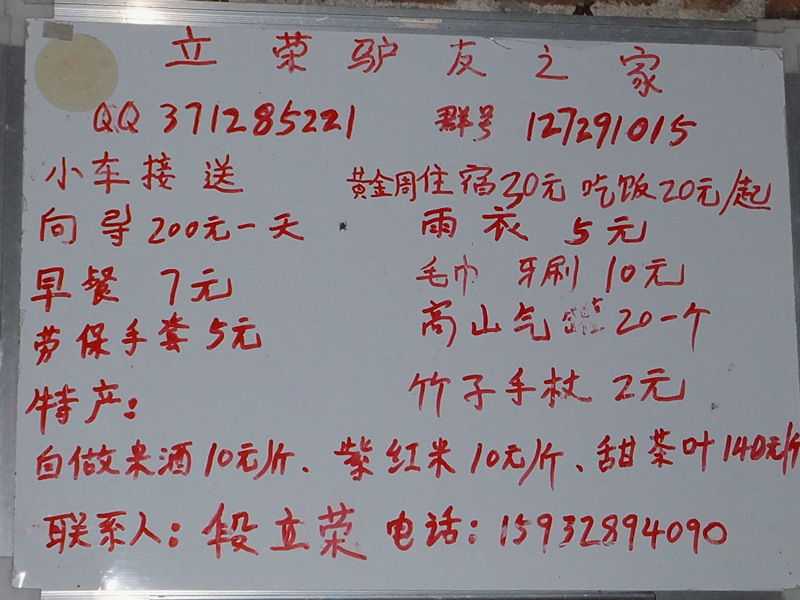 立荣驴友之家
QQ 371285221 群号 127291015
小车接送 黄金周住宿30元 吃饭20元/起
向导200元一天 雨衣 5元
早餐 7元 毛巾 牙刷 10元
劳保手套 5元 高山气罐 20一个
特产: 竹子手杖 2元
自做米酒10元/斤、紫红米10元/斤、甜茶叶140元/斤
联系人:段立荣 电话:15932894090